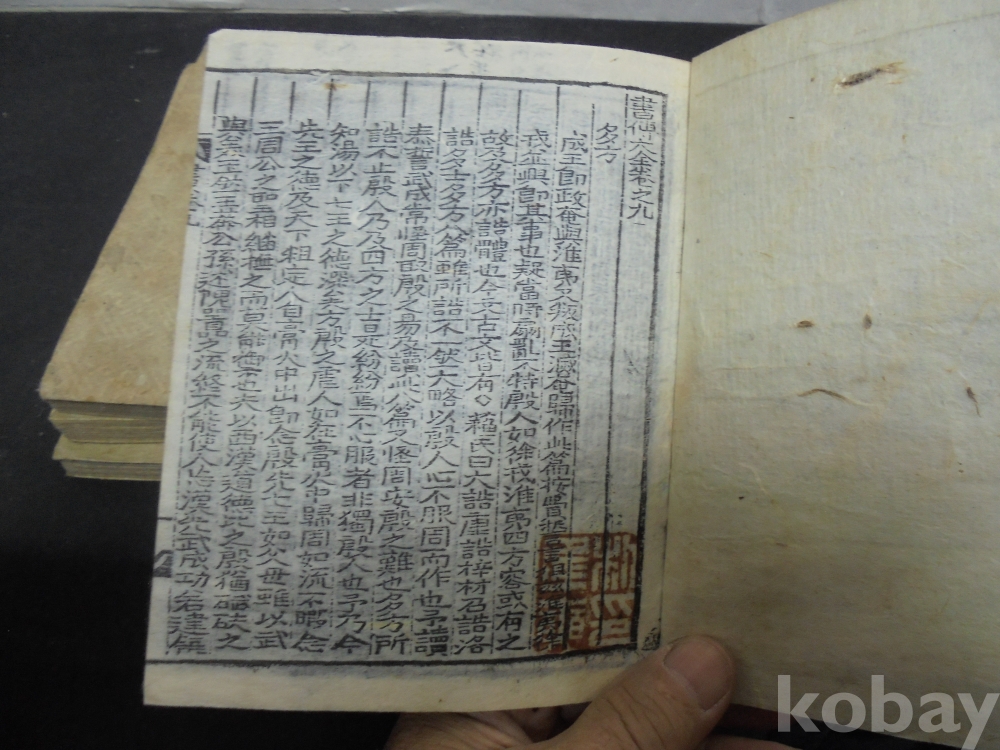 書傳大全卷之九
多方
成王卽政奄與淮夷又叛成王滅奄歸作此篇按費誓言徂玆淮夷徐
戎並興卽其事也疑當時扇亂不特殷人如徐戎淮夷四方容或有之
故及多方亦誥體也今文古文皆有○蘇氏曰大誥康誥梓材召誥洛
誥多士多方八篇雖所誥不一然大略以殷人心不服周而作也予讀
泰誓武成常怪周取殷之易及讀此八篇又怪周安殷之難也多方所
誥不止殷人乃及四方之士是紛紛焉不心服者非獨殷人也予乃今
知湯以下七王之德深矣方殷之虐人如在膏火中歸周如流不暇念
先王之德及天下粗定人自膏火中出卽念殷先七王如父母雖以武
王周公之聖相繼撫之而莫能禦也夫以西漢道德比之殷猶碔砆之
與美玉然王莽公孫述隗囂之流終不能使人忘漢光武成功若建瓴
kobay